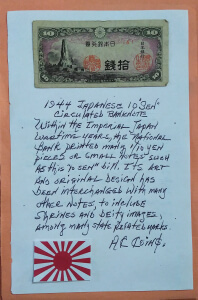 10 10
日本銀行券
拾銭
1944 JAPANESE 10 "SEN"
CIRCULATED BANKNOTE
WITHIN THE IMPERIAL JAPAN
WARTIME YEARS, THE NATIONAL
BANK PRINTED MANY "10 YEN
PIECES OR SMALL NOTES" SUCH
AS THIS "10 SEN" BILL. ITS ART
AND ORIGINAL DESIGN HAS
BEEN INTERCHANGED WITH MANY
OTHER NOTES, TO INCLUDE
SHRINES AND DEITY IMAGES,
AMONG MANY STATE RELATED MARKS.